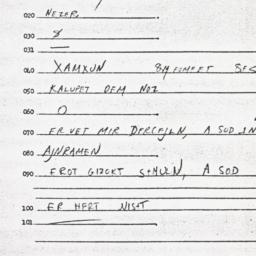 020 NEZER,
030 8
031 —
040 XAMXUN
050 KALUPET DEM NOZ
060 O
070 ER VET MIR DERCEJLN, A SOD
080 AJNRAMEN
090 EROT GIZOKT SHULN, A SOD
100 ER HERT NISHT
101 —